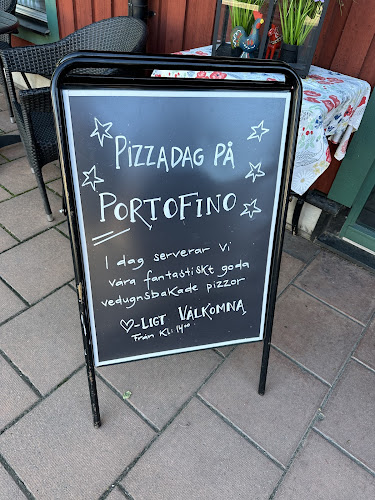 PIZZADAG PÅ
PORTOFINO
I dag serverar vi
våra fantastiskt goda
vedugnsbakade pizzor
♡-LIGT VÄLKOMNA
Från Kl: 14⁰⁰